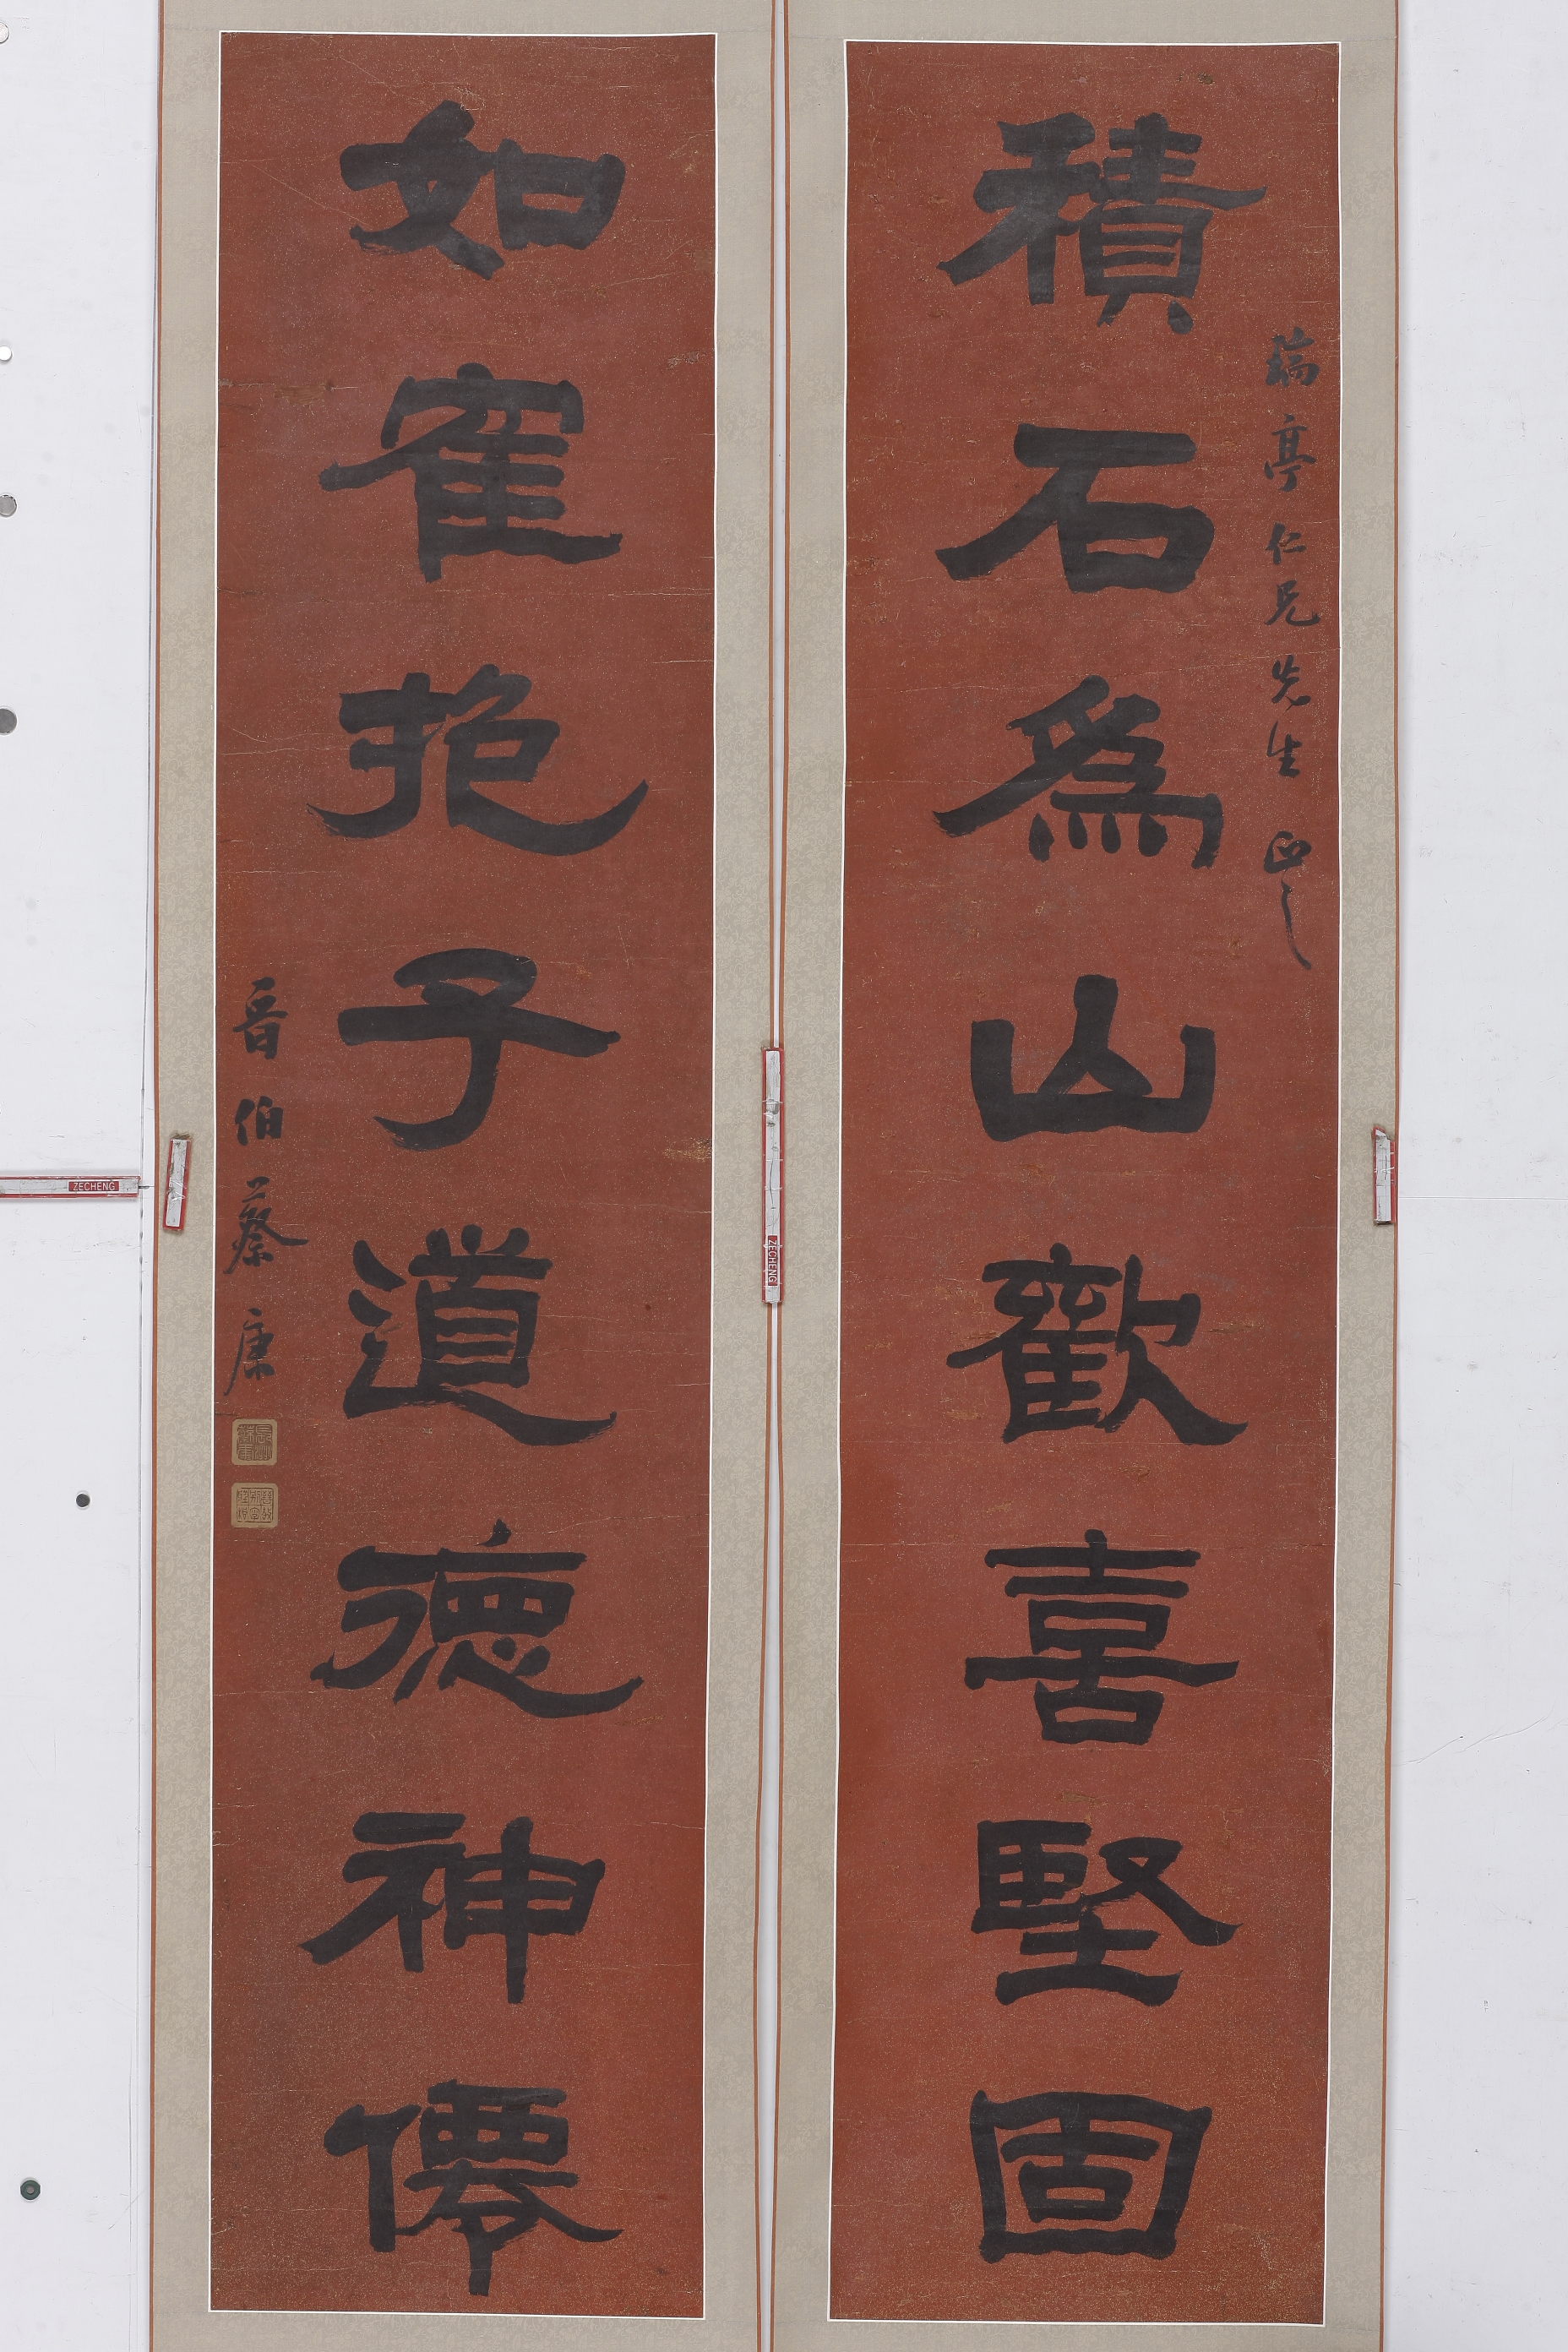 瑞亭仁兄先生正之
積石為山歡喜堅固
如隺抱子道德神僊
晉伯蔡康
ZECHENG
ZECHENG